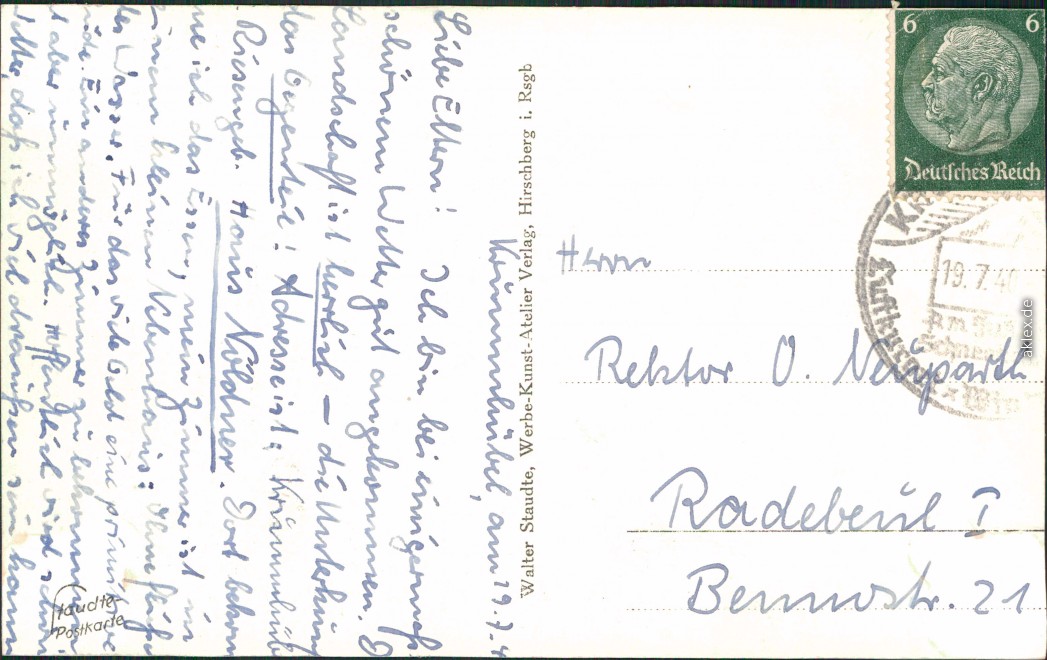 Krummhübel, am 19.7.4
Liebe Eltern! Ich bin bei einigermaß.
schönem Wetter gut angekommen. D
Landschaft ist herrlich – die Unterkunft
das Gegenteil! Adresse ist: Krummhüb
Riesengeb. Haus Nöldner. Dort bekom
me ich das Essen, mein Zimmer ist in
einem kleinen Nebenhaus. Ohne fließ
des Wasser. Für das viele Geld eine primitive
Bude. Ein anderes Zimmer zu bekommen
ist aber unmöglich. Hoffentlich wird schön
Wetter, daß ich viel draußen sein kann
Staudte-
Postkarte
Walter Staudte, Werbe-Kunst-Atelier Verlag, Hirschberg i. Rsgb
6 6
Deutsches Reich
19.7.40
Luftkurort
Herrn
Rektor O. Neuparth
Radebeul I
Bennostr. 21
aklex.de